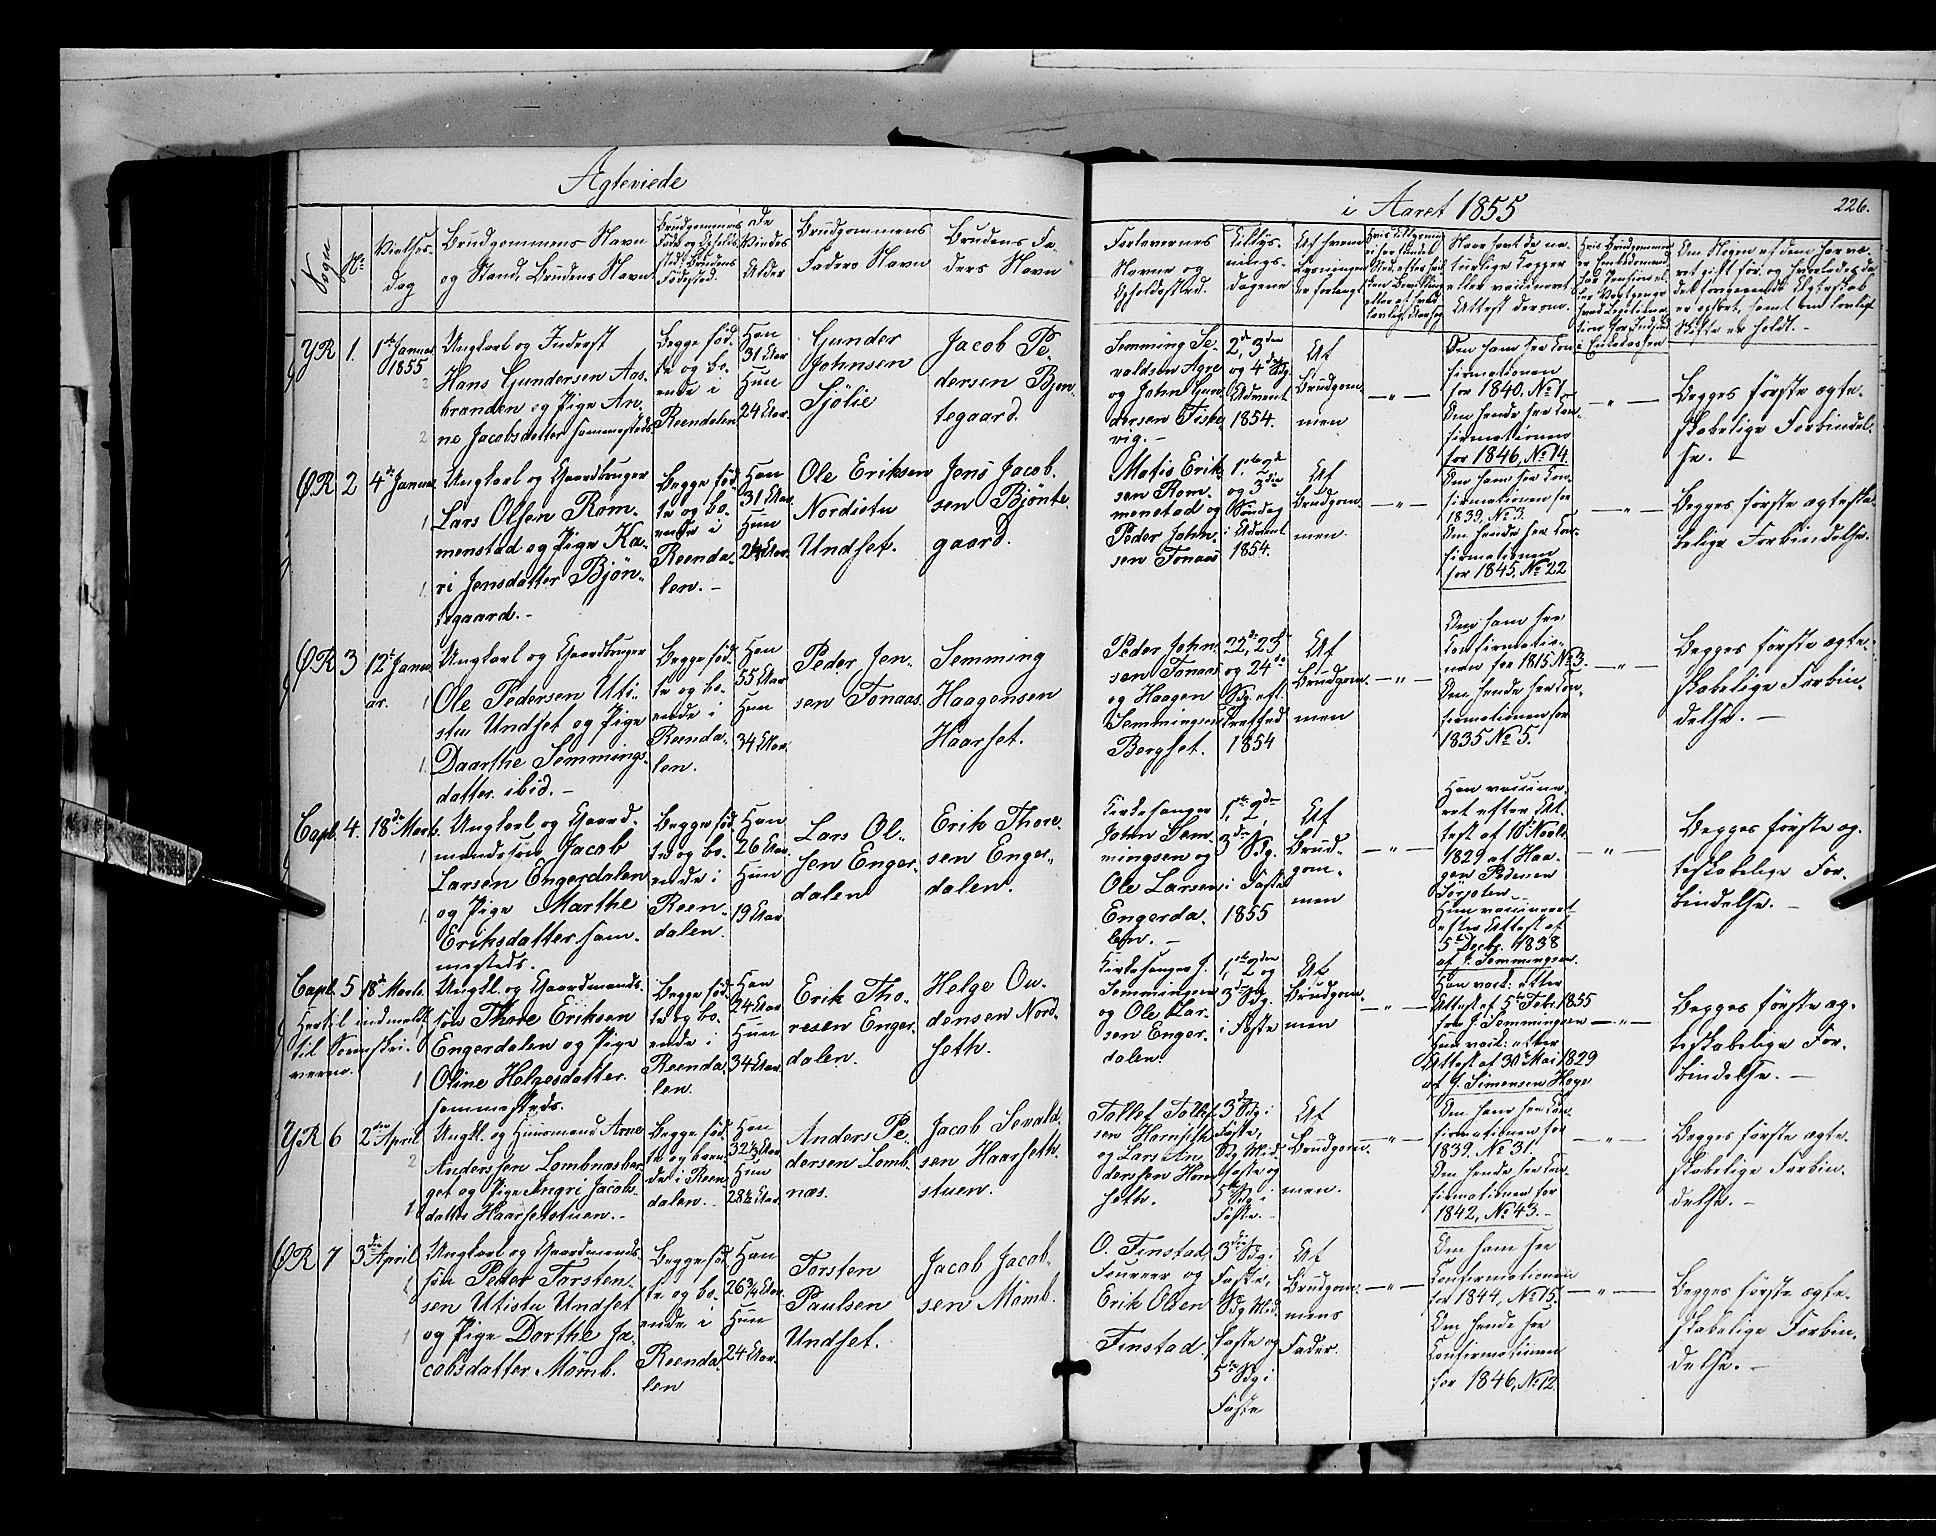 Agteviede
i Aaret 1855
226.
Sogn
No
Vielses-
dag
Brudgommens Navn
og Stand, Brudens Navn
Brudgommens
Föde og Opholds
sted. Brudens
Födested.
de
Viedes
Alder
Brudgommens
Faders Navn
Brudens Fa-
ders Navn
Forlovernes
Navne og
Opholdssted.
Lillys-
nings-
dagene
Af hvem
Lysningen
er forlangt
YR
1.
1ste Januar
1855
Ungkarl og Inderst
Hans Gundersen Aas-
branden og Pige An-
ne Jacobsdatter sammesteds
Begge föd-
te og bo-
ende i
Reendalen.
Han
31 Aar
Hun
24 Aar.
Gunder
Johnsen
Sjölie
Jacob Pe-
dersen Bjön-
tegaard.
Semming Se-
valdsen Agre
og John Gun-
dersen Fiske-
vig. -
2den, 3den
og 4de Sdg.
Advent
1854.
Af
Brudgom-
men
— " —
Om ham see Con-
firmationen
for 1840. No 1
Om hende see Con-
firmationen
for 1846, No 14.
— " —
Begges förste ægte-
skabelige Forbindel-
se. -
ØR
2
4de Januar
Ungkarl og Gaardbruger
Lars Olsen Rom-
menstad og Pige Ka-
ri Jensdatter Bjön-
tegaard. -
Begge föd-
te og bo-
ende i
Reenda-
len. -
Han
31 Aar.
Hun
24 Aar.
Ole Eriksen
Nordistu
Undset.
Jens Jacob-
sen Bjönte-
gaard.
Matis Erik-
sen Rom-
menstad og
Peder John-
sen Tonaas
1ste, 2den
og 3die
Söndag
i Advent
1854.
Af
Brudgom-
men.
— " —
Om ham see Con-
firmationen for
1839, No 3.
Om hende see Con-
firmationen
for 1845. No 22
— " —
Begges förste ægteska-
belige Forbindelse. -
ØR
3
12te Janu-
ar.
Ungkarl og Gaardbruger
Ole Pedersen Uti-
stu Undset og Pige
Daarthe Semmings-
datter ibid. -
Begge föd-
te og bo-
ende i
Reenda-
len.
Han
55 Aar
Hun
34 Aar.
Peder Jen-
sen Tonaas.
Semming
Haagensen
Haarset.
Peder John-
sen Tonaas
og Haagen
Semmingsen
Bergset.
22de, 23de
og 24de
Sdg. eft.
Trefhed
1854
Af
Brudgom-
men
— " —
Om ham see
Confirmatio-
nen for 1815 No 3.
Om hende see Con-
firmationen for
1835 No 5.
— " —
Begges förste ægte-
skabelige Forbin-
delse. -
Capl.
4.
18de Marts.
Ungkarl og Gaard-
mandssön Jacob
Larsen Engerdalen
og Pige Marthe
Eriksdatter sam-
mesteds.
Begge föd-
te og bo-
ende i
Reen-
dalen.
Han
26 Aar.
Hun
19 Aar
Lars Ol-
sen Enger-
dalen
Erik Thore-
sen Enger-
dalen.
Kirkesanger
John Sem-
mingsen og
Ole Larsen
Engerda-
len. -
1ste, 2den,
3die Sdg.
i Faste
1855
Af
Brud-
gom-
men
— " —
Han vaccine-
ret efter At-
test af 18 Novbr
1829 af Haa-
gen Pedersen
Hun vaccineret
efter Attest af
5te Decbr. 1838
af J. Semmingsen.
— " —
Begges förste æg-
teskabelige For-
bindelse. -
Capl.
5
18de Marts.
Ungkl. og Gaardmands-
sön Thore Eriksen
Engerdalen og Pige
Oline Helgesdatter
sammesteds.
Begge föd-
te og bo-
ende i
Reenda-
len.
Han
24 Aar
Hun
34 Aar.
Erik Tho-
resen Enger-
dalen.
Helge Ou-
densen Nord-
seth.
Kirkesanger J.
Semmingsen
og Ole Lar-
sen Enger-
dalen.
1ste, 2den og
3die Sdg.
i Faste
Af
Brudgom-
men
— " —
Han vacc: efter
Attest af 5te Febr. 1855
fra J. Semmingsen
Hun vacc: efter
Attest af 30te Mai 1829
af J. Simensen Hoge
— " —
Begges förste æg-
teskabelige For-
bindelse. -
YR
6
2den April
Ungkl. og Huusmand Arne
Anderssen Lombnæsber-
get og Pige Ingri Jacobs-
datter Haarsetstuen. -
Begge föd-
te og boen-
de i Reen-
dalen. -
Han
32½ Aar
Hun
28½ Aar.
Anders Pe-
dersen Lomb-
næs.
Jacob Sevald-
sen Haarseth-
stuen.
Tollef Tollef-
sen Hornseth
og Lars An-
dersen Horn-
seth.
3die Sdg. i
Faste,
Sdg. Mid-
faste og
5te Sdg. i
Faste. -
Af
Brudgom-
men.
— " —
Om ham see Con-
firmationen for
1839. No 31.
Om hende see Con-
firmationen for
1842, No 43. -
— " —
Begges förste ægte-
skabelige Forbin-
delse. -
ØR
7
3die April
Ungkarl og Gaardmands-
sön Peder Torsten-
sen Utistu Undset
og Pige Dorthe Ja-
cobsdatter Mömb.
Begge föd-
te og bo-
ende i
Reenda-
len
Han
26¾ Aar.
Hun
24 Aar.
Torsten
Paulsen
Undset.
Jacob Jacob-
sen Mömb.
O. Finstad,
Foureer og
Erik Olsen
Finstad.
3die Sdg. i
Faste,
Sdg. Mid-
faste og
5te Sdg. i
Faste
Af
Brudgom-
mens
Fader.
— " —
Om ham see
Confirmationen
for 1844, No 15.
Om hende see
Confirmationen
for 1846, No 12.
— " —
Begges förste ægte-
skabelige Forbin-
delse. -